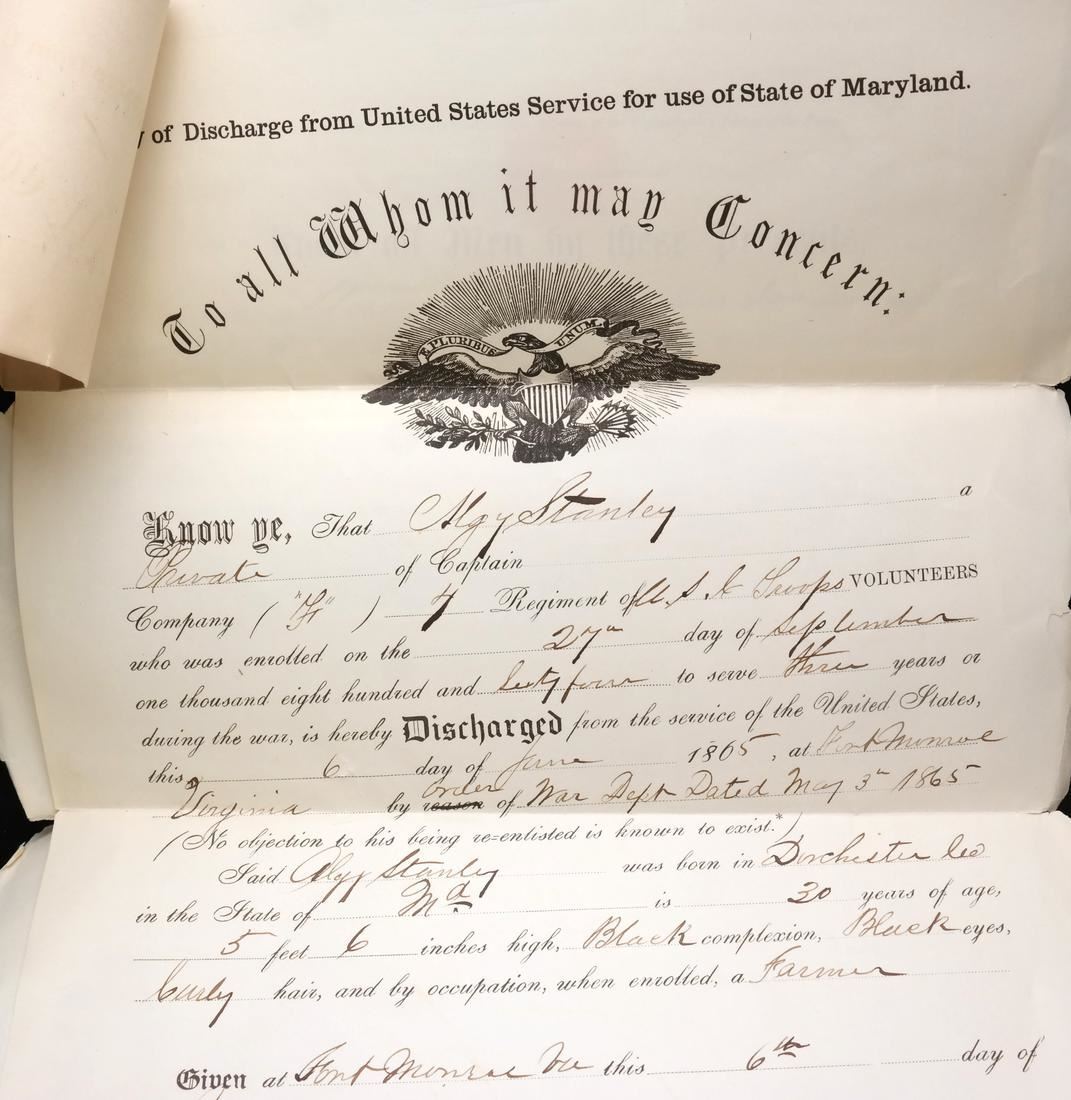 of Discharge from United States Service for use of State of Maryland.
To all Whom it may Concern:
E PLURIBUS UNUM.
Know ye, That Algy Stanley a
Private of Captain
Company ( ) 4 Regiment of U. S. C Troops VOLUNTEERS
who was enrolled on the 27th day of September
one thousand eight hundred and Sixty four to serve three years or
during the war, is hereby Discharged from the service of the United States,
this 6 day of June 1865, at Fort Monroe
Virginia by reason order of War Dept Dated May 3d 1865
(No objection to his being re=enlisted is known to exist.*)
Said Algy Stanley was born in Dorchester Co
in the State of Md is 30 years of age,
5 feet 6 inches high, Black complexion, Black eyes,
Curly hair, and by occupation, when enrolled, a Farmer
Given at Fort Monroe Va this 6th day of